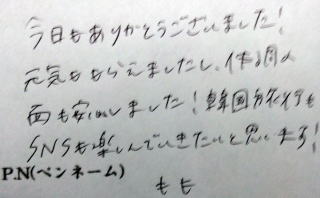 今日もありがとうございました!
元気ももらえましたし、体調の
面も安心しました!韓国旅行も
SNSも楽しんでいきたいと思います!
P.N(ペンネーム)
もも